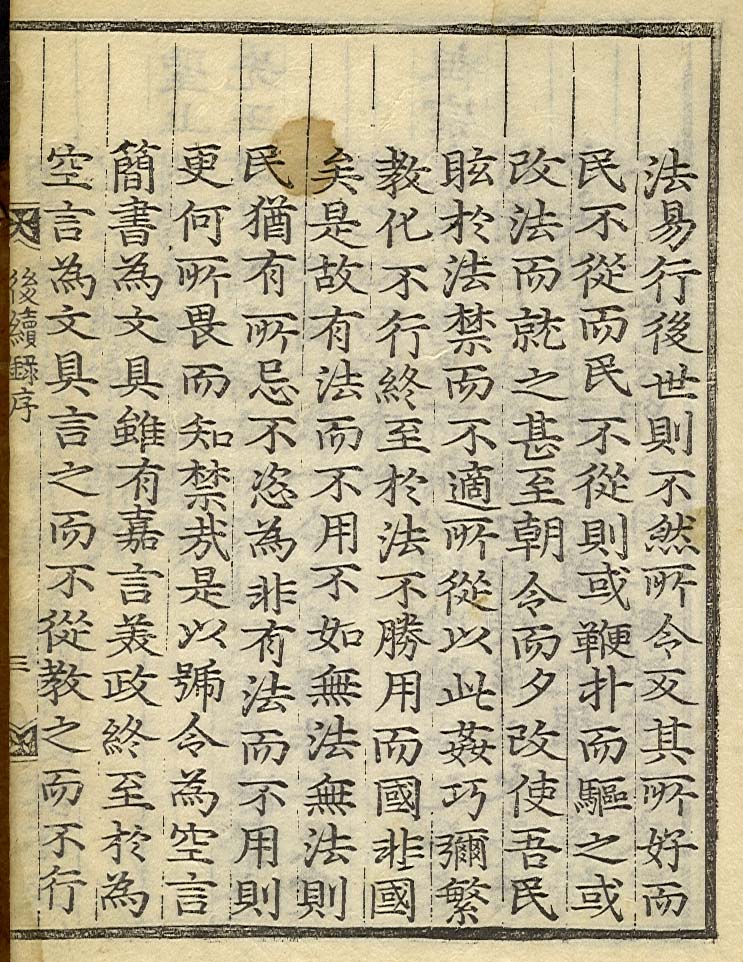 法易行後世則不然所令反其所好而
民不從而民不從則或鞭扑而驅之或
改法而就之甚至朝令而夕改使吾民
眩於法禁而不適所從以此姦巧彌繁
教化不行終至於法不勝用而國非國
矣是故有法而不用不如無法無法則
民猶有所忌不恣為非有法而不用則
更何所畏而知禁哉是以號令為空言
簡書為文具雖有嘉言善政終至於為
空言為文具言之而不從教之而不行
後續錄序
三